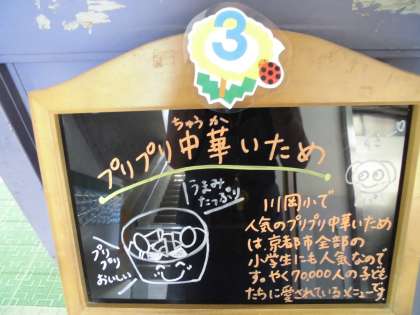 3
ちゅうか
プリプリ中華いため
うまみ
たっぷり
プリ
プリ
おいしい
川岡小で
人気のプリプリ中華いため
は京都市全部の
小学生にも人気なので
す。やく70,000人の子ど
もたちに愛されているメニューです。